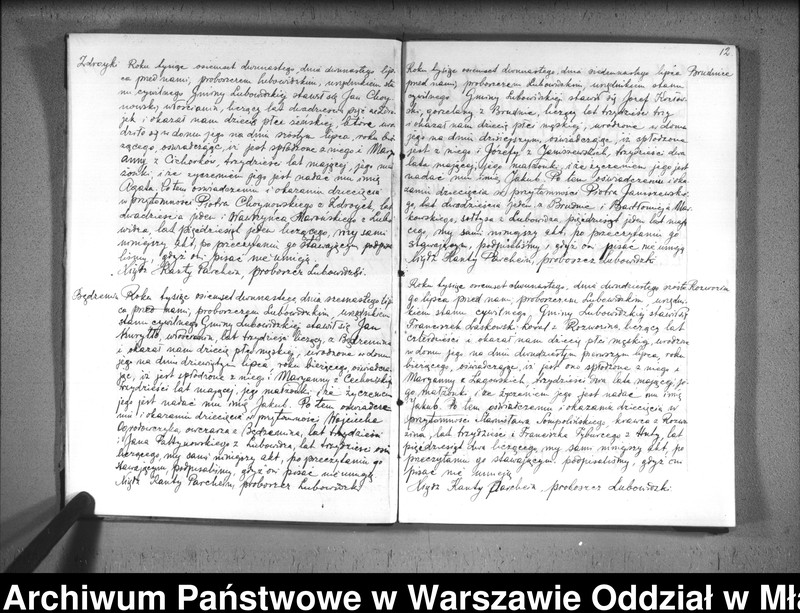 Zdroyki Roku tysiąc osiemset dwunastego, dnia dwunastego lip-
ca przed nami, proboszczem Lubowidzkim, urzędnikiem sta-
nu cywilnego Gminy Lubowidzkiej stawił się Jan Choy-
nowski, włościanin, liczący lat dwadzieścia pięć
i okazał nam dziecię płci żeńskiej, które uro-
dziło się w domu jego na dniu szóstym lipca, roku bie-
żącego, oświadczając, iż jest spłodzone z niego i Mary-
anny z Cichorków, trzydzieści lat mającej, jego mał-
żonki, i że życzeniem jego jest nadać mu imię
Agata. Po tem oświadczeniu i okazaniu dziecięcia
w przytomności Piotra Choynowskiego z Zdroyk, lat
dwadzieścia jeden i Wawrzyńca z Lubo-
widza, lat pięćdziesiąt jeden liczącego, my sami
niniejszy akt, po przeczytaniu go stawającym podpisa-
liśmy, gdyż oni pisać nie umieją.
Xiądz Kanty Parchein, proboszcz Lubowidzki.
Będzymin Roku tysiąc osiemset dwunastego, dnia szesnastego lip-
ca przed nami, proboszczem Lubowidzkim, urzędnikiem
stanu cywilnego Gminy Lubowidzkiej stawił się Jan
Kuryłło, włościanin, lat trzydzieści liczący, z Będzymina
i okazał nam dziecię płci męskiej, urodzone w domu
jego na dniu dziewiątym lipca, roku bieżącego, oświadcza-
jąc, iż jest spłodzone z niego i Maryanny z Cechowskich,
trzydzieści lat mającej, jego małżonki i że życzeniem
jego jest nadać mu imię Jakub. Po tem oświadcze-
niu i okazaniu dziecięcia w przytomności Wojciecha
owczarza z Będzymina, lat trzydzieści
i Jana z Lubowidza, lat trzydzieści
liczącego, my sami niniejszy akt, po przeczytaniu go
stawającym podpisaliśmy, gdyż oni pisać nie umieją.
Xiądz Kanty Parchein, proboszcz Lubowidzki
12
Roku tysiąc osiemset dwunastego, dnia siedemnastego lipca Brudnice
przed nami, proboszczem Lubowidzkim, urzędnikiem stanu
cywilnego Gminy Lubowidzkiej stawił się Józef Kozłow-
ski, gorzelany z Brudnic, liczący lat trzydzieści trzy
i okazał nam dziecię płci męskiej, urodzone w domu
jego na dniu dzisiejszym, oświadczając, iż spłodzone
jest z niego i Józefy z Janiszewskich, trzydzieści dwa
lata mającej, jego małżonki, i że życzeniem jego jest
nadać mu imię Jakub. Po tem oświadczeniu i oka-
zaniu dziecięcia w przytomności Piotra Janiszewskie-
go, lat dwadzieścia jeden, z Brudnic i Bartłomieja
sołtysa z Lubowidza pięćdziesiąt jeden lat mają-
cego, my sami niniejszy akt, po przeczytaniu go
stawającym, podpisaliśmy, gdyż oni pisać nie umieją
Xiądz Kanty Parchein, proboszcz Lubowidzki
Roku tysiąc osiemset dwunastego, dnia dwudziestego szóste- Rozwozin
go lipca przed nami, proboszczem Lubowidzkim, urzędni-
kiem stanu cywilnego, Gminy Lubowidzkiej stawił się
Franciszek Laskowski kowal z Rozwozina, liczący lat
czterdzieści i okazał nam dziecię płci męskiej, urodzone
w domu jego na dniu dwudziestym pierwszym lipca, roku
bieżącego, oświadczając, iż jest one spłodzone z niego i
Maryanny z Łagowskich, trzydzieści dwa lata mającej je-
go małżonki, i że życzeniem jego jest nadać mu imię
Jakub. Po tem oświadczeniu i okazaniu dziecięcia w
przytomności Stanisława krawca z Rozwo-
zina, lat trzydzieści i Franciszka z Huty, lat
pięćdziesiąt dwa liczącego, my sami niniejszy akt, po
przeczytaniu go stawającym, podpisaliśmy, gdyż oni
pisać nie umieją
Xiądz Kanty Parchein, proboszcz Lubowidzki.
Archiwum Państwowe w Warszawie Oddział w Mła